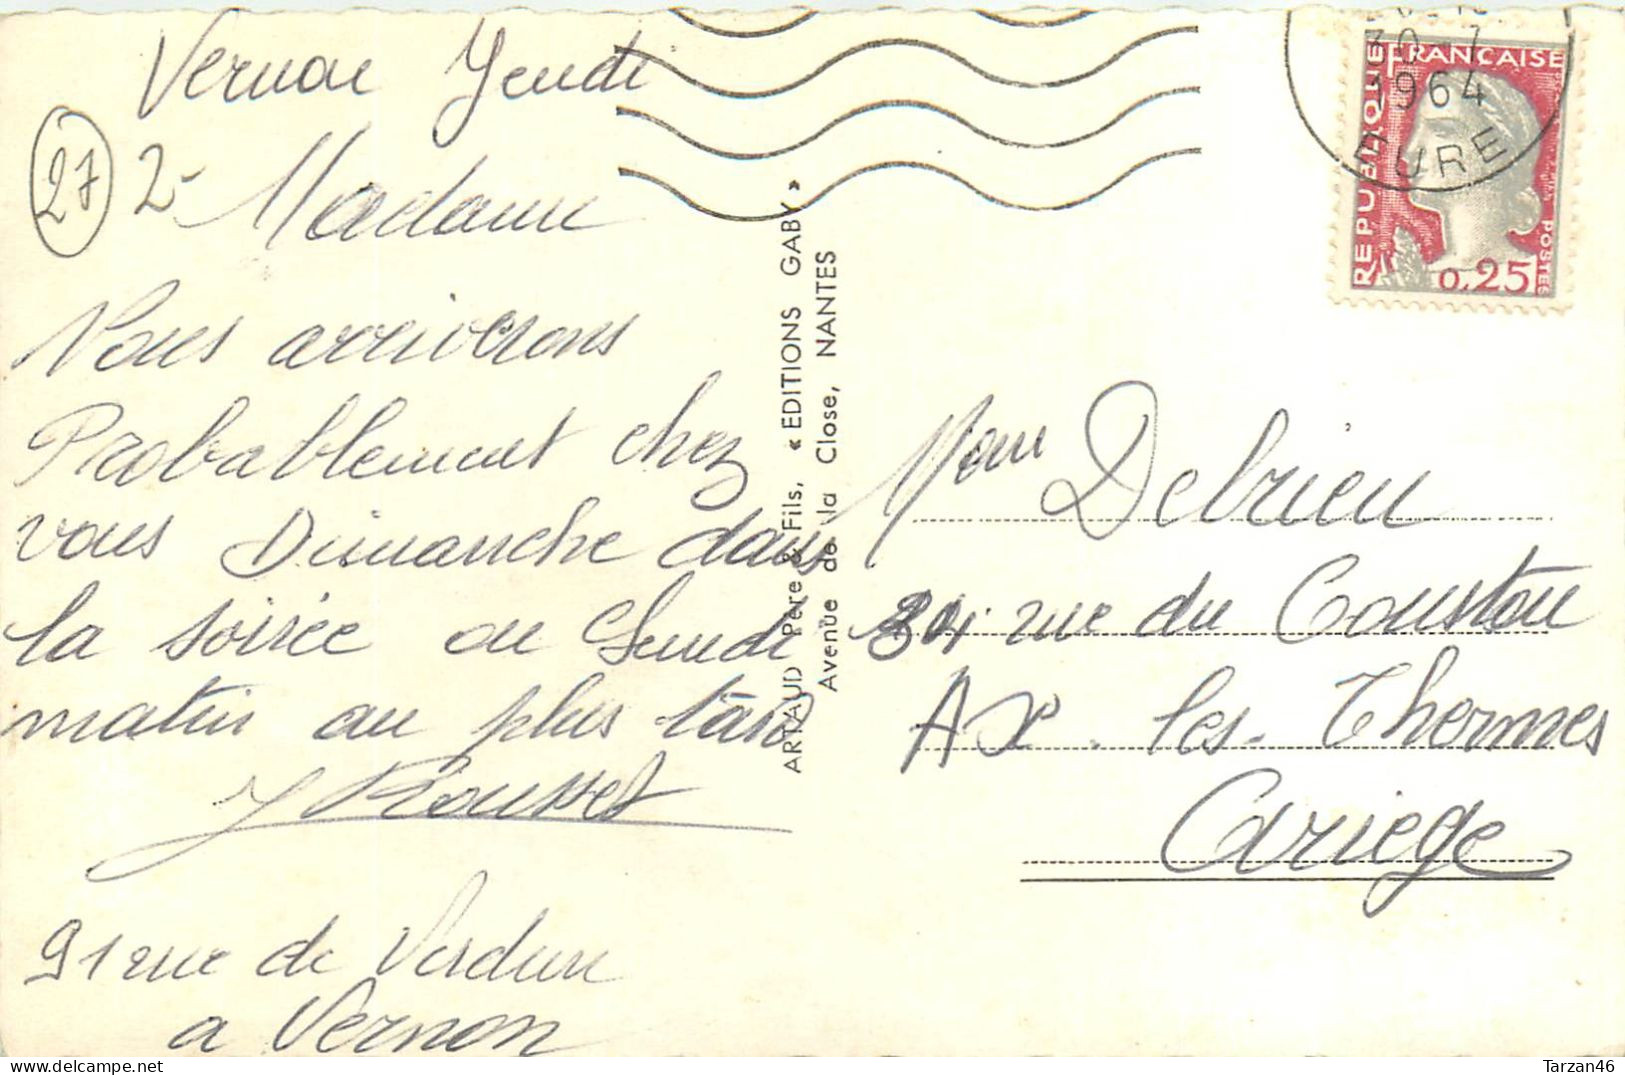 Vernon Jeudi
27
2-
Madame
Nous arriverons
Probablement chez
vous Dimanche dans
la soirée ou Lundi
matin au plus tard
J Rousset
91 rue de Verdun
a Vernon
ARTAUD Père & Fils, « EDITIONS GABY »
Avenue de la Close, NANTES
30-7
1964
EURE
REPUBLIQUE FRANÇAISE
POSTES
0,25
Mme Delrieu
rue du Coustou
Ax-les-Thermes
Ariege
Tarzan46